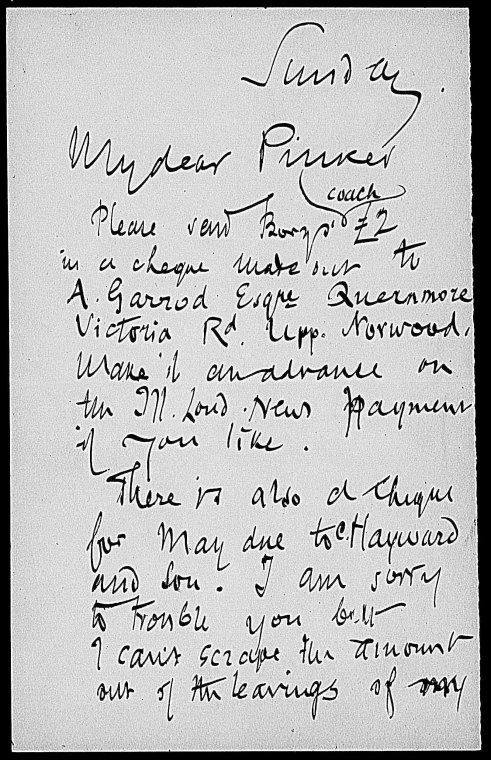 Sunday.
My dear Pinker
coach
Please send Borys' £2
in a cheque made out to
A. Garrod Esqre Quernmore
Victoria Rd. Upp. Norwood.
Make it an advance on
the Ill. Lond. News payment
if you like.
There is also a cheque
for May due to C. Hayward
and Son. I am sorry
to trouble you but
I can't scrape the amount
out of the leavings of my